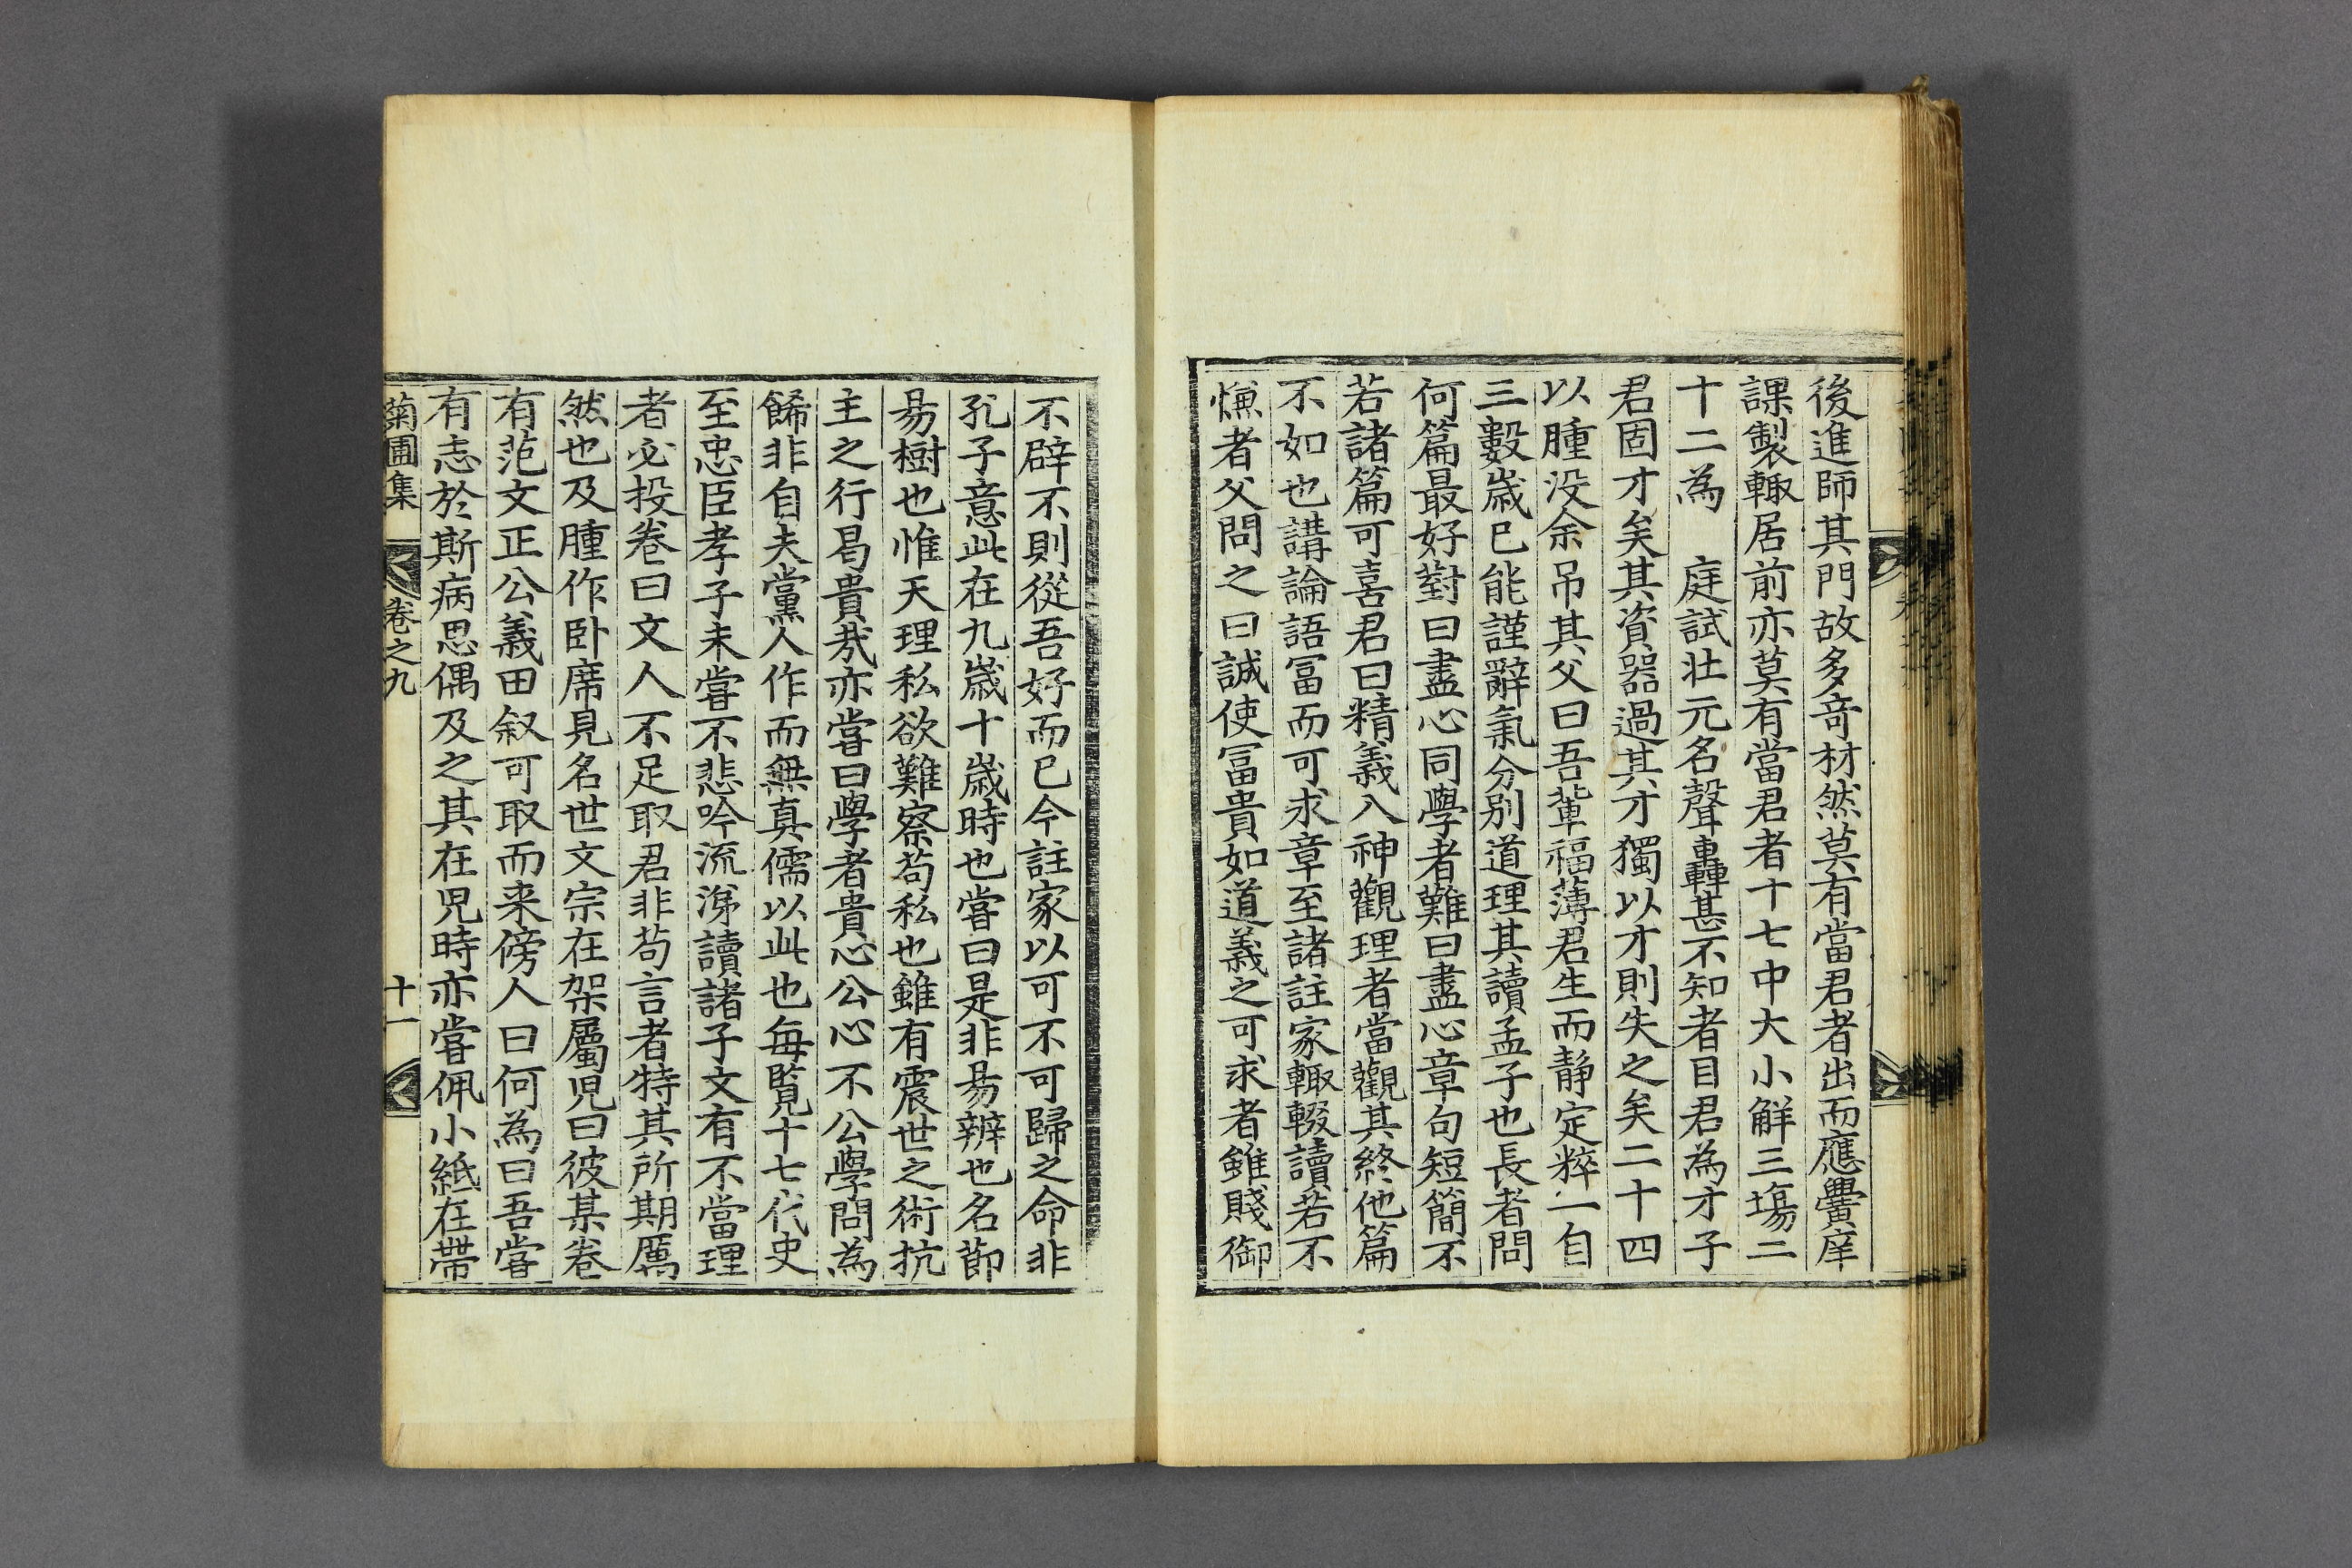 後進師其門故多竒材然莫有當君者出而應黌庠
課製輙居前亦莫有當君者十七中大小觧三塲二
十二為　庭試壯元名聲轟甚不知者目君為才子
君固才矣其資器過其才獨以才則失之矣二十四
以腫没余吊其父曰吾輩福薄君生而静定粹一自
三數歲已能謹辭氣分別道理其讀孟子也長者問
何篇最好對曰盡心同學者難曰盡心章句短簡不
若諸篇可喜君曰精義入神觀理者當觀其終他篇
不如也講論語冨而可求章至諸註家輙輟讀若不
慊者父問之曰誠使冨貴如道義之可求者雖賤御
不辟不則從吾好而已今註家以可不可歸之命非
孔子意此在九歲十歲時也嘗曰是非昜辨也名莭
昜樹也惟天理私欲難察苟私也雖有震世之術抗
主之行曷貴㢤亦嘗曰學者貴心公心不公學問為
餙非自夫黨人作而無真儒以此也每覧十七代史
至忠臣孝子未嘗不悲吟流涕讀諸子文有不當理
者必投卷曰文人不足取君非苟言者特其所期厲
然也及腫作卧席見名世文宗在架屬児曰彼某卷
有范文正公義田叙可取而来傍人曰何為曰吾嘗
有志於斯病思偶及之其在児時亦嘗佩小紙在帶
菊圃集　卷之九　十一